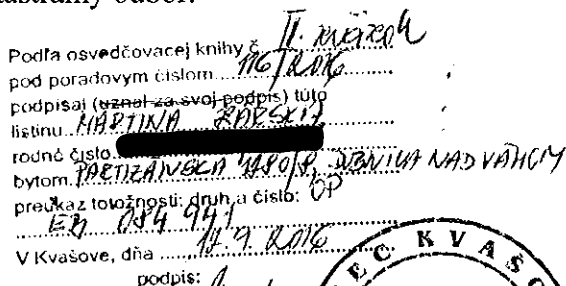 Podľa osvedčovacej knihy č. II.
pod poradovým číslom 116/2016
podpísal (uznal za svoj podpis) túto
listinu MARTINA
rodné číslo
bytom PARTIZÁNSKA DUBNICA NAD VÁHOM
preukaz totožnosti: druh a číslo: OP
EB 084 941
V Kvašove, dňa 17.9.2016
podpis:
EC KVAŠO